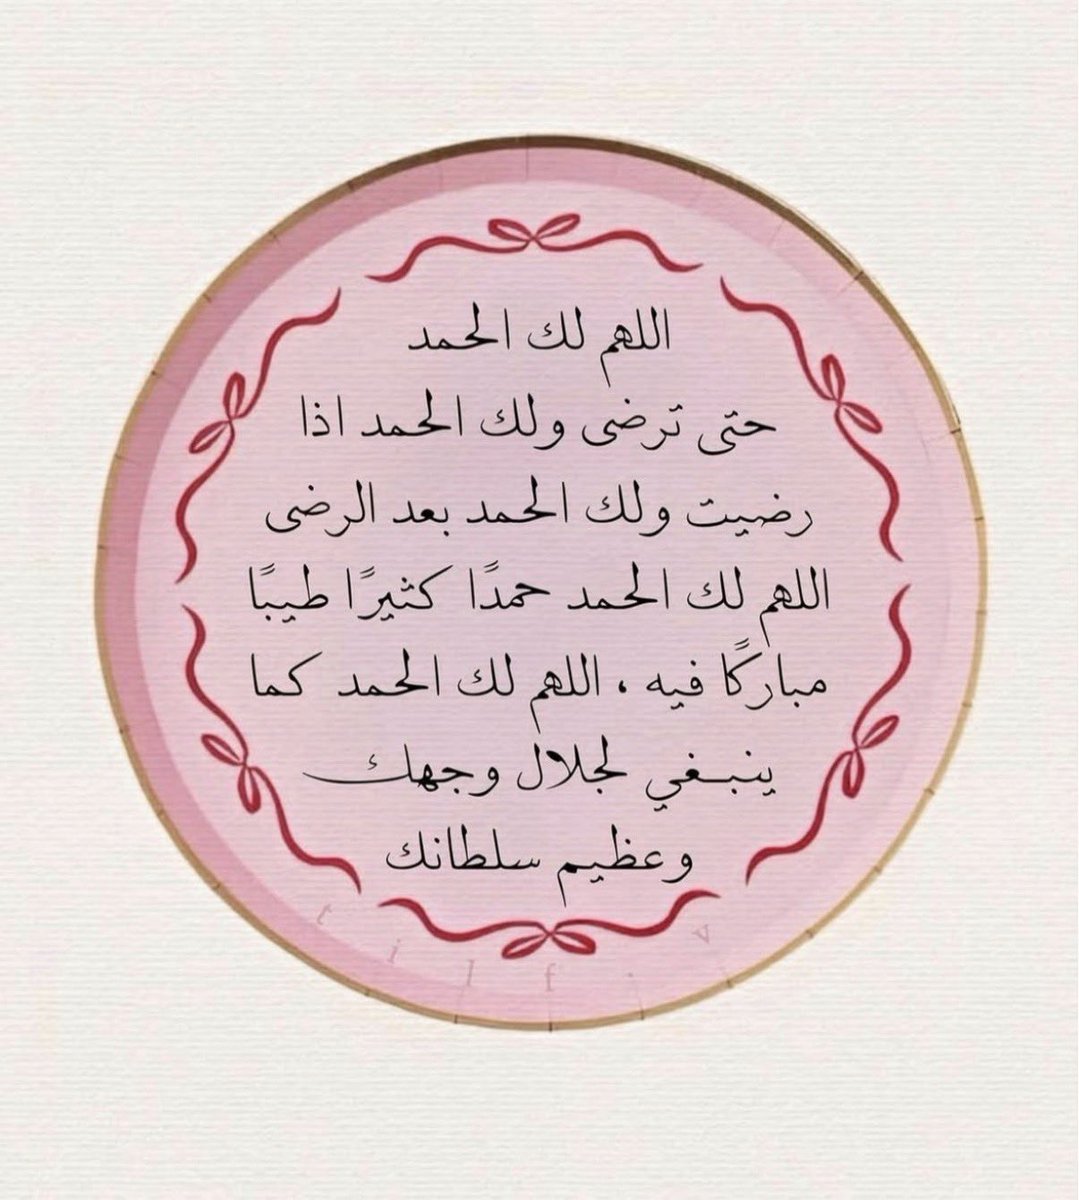 اللهم لك الحمد
حتى ترضى ولك الحمد اذا
رضيت ولك الحمد بعد الرضى
اللهم لك الحمد حمدًا كثيرًا طيبًا
مباركًا فيه ، اللهم لك الحمد كما
ينبغي لجلال وجهك
وعظيم سلطانك
t i l f i v